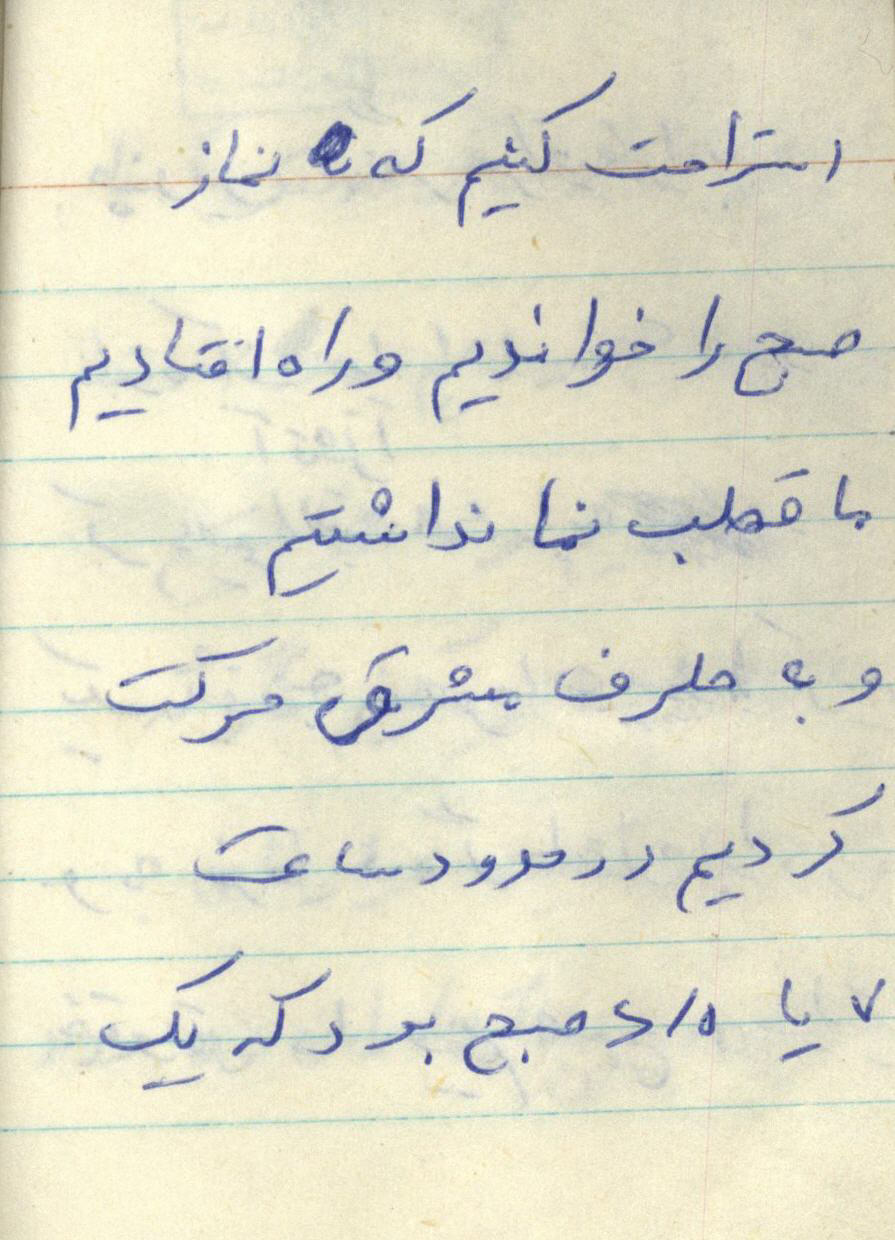 استراحت کنیم که نماز
صبح را خواندیم و راه افتادیم
ما قطب نما نداشتیم
و به طرف مشرق حرکت
کردیم در حدود ساعت
۷ یا ۶/۵ صبح بود که یک